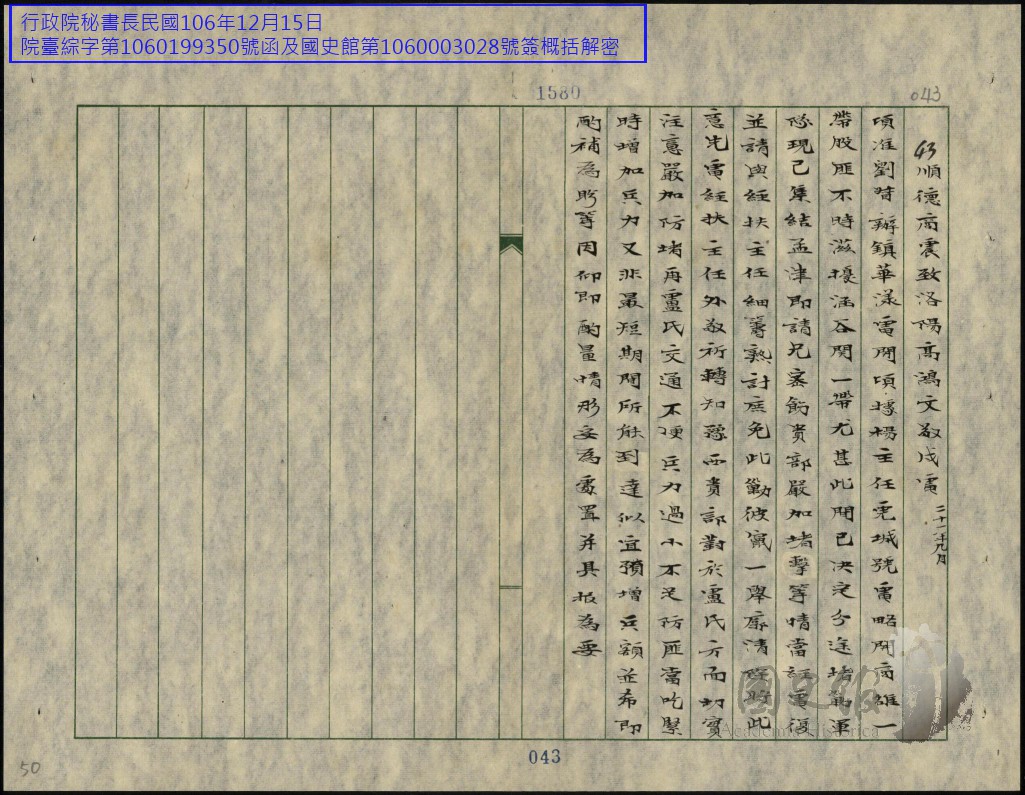 行政院秘書長民國106年12月15日
院臺綜字第1060199350號函及國史館第1060003028號簽概括解密
1580
043
43順德高震致洛陽高鴻文敬戌電 二十一年九月
頃准劉督辦鎮華漾電開頃據楊主任虎城號電略開商雒一
帶股匪不時滋擾涵谷關一帶尤甚此間已決定分途堵剿軍
隊現已集結孟津即請兄塞飭貴部嚴加堵擊等情當經電復
並請與經扶主任細籌熟討庶免此勦彼竄一舉廓清除將此
意先電經扶主任外敬祈轉知豫西貴部對於盧氏方面切實
注意嚴加防堵再盧氏交通不便兵力過小不足防匪當吃緊
時增加兵力又非最短期間所能到達似宜預增兵額並希即
酌補為盼等因仰即酌量情形妥為處置并具報為要
國史館
Academia Historica
043
50